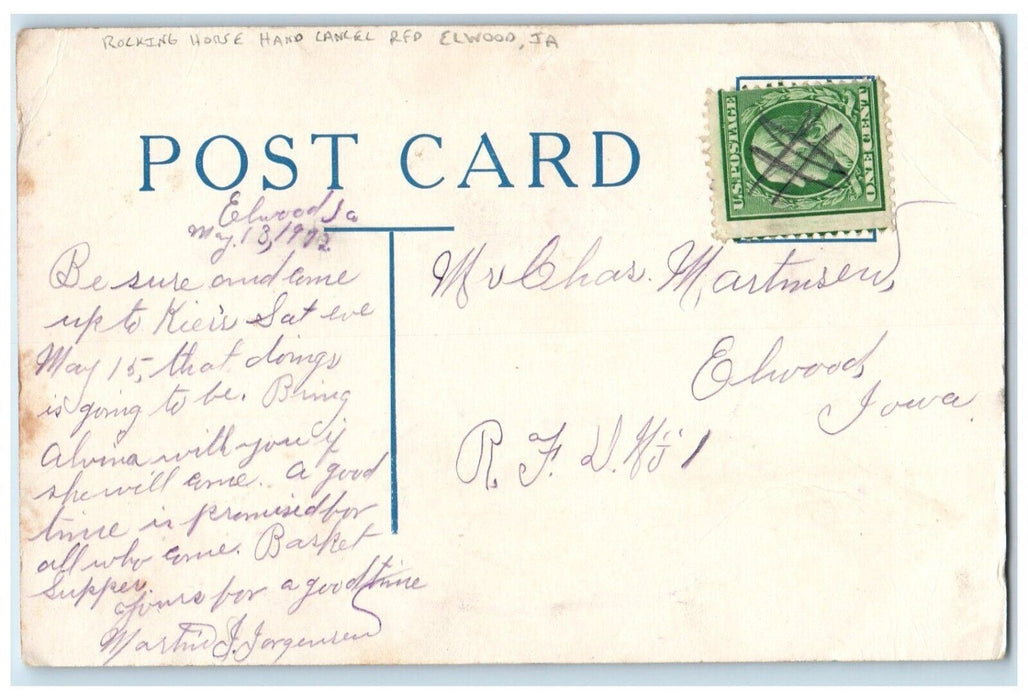 ROCKING HORSE HAND CANCEL RFD ELWOOD, IA
POST CARD
U.S. POSTAGE
ONE CENT
Elwood Ia
May. 13, 1912
Be sure and come
up to Kier's Sat eve
May 15, that doings
is going to be. Bring
Alvina with you if
she will come. A good
time is promised for
all who come. Basket
Supper.
Yours for a good time
Martin J. Jorgensen
Mr Chas. Martinsen,
Elwood,
Iowa.
R. F. D. No 1